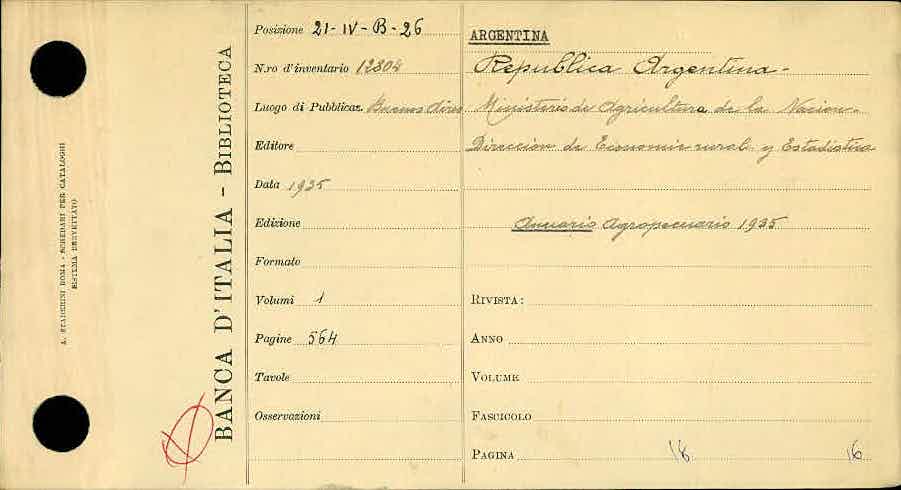 A. STADERINI ROMA - SCHEDARI PER CATALOGHI
SISTEMA BREVETTATO
BANCA D'ITALIA - BIBLIOTECA
Posizione 21-IV-B-26
N.ro d'inventario 12804
Luogo di Pubblicaz. Buenos Aires
Editore
Data 1935
Edizione
Formato
Volumi 1
Pagine 564
Tavole
Osservazioni
ARGENTINA
Republica Argentina -
Ministerio de Agricultura de la Nacion -
Direccion de Economia rural y Estadistica
Anuario Agropecuario 1935
RIVISTA:
ANNO
VOLUME
FASCICOLO
PAGINA 16 16